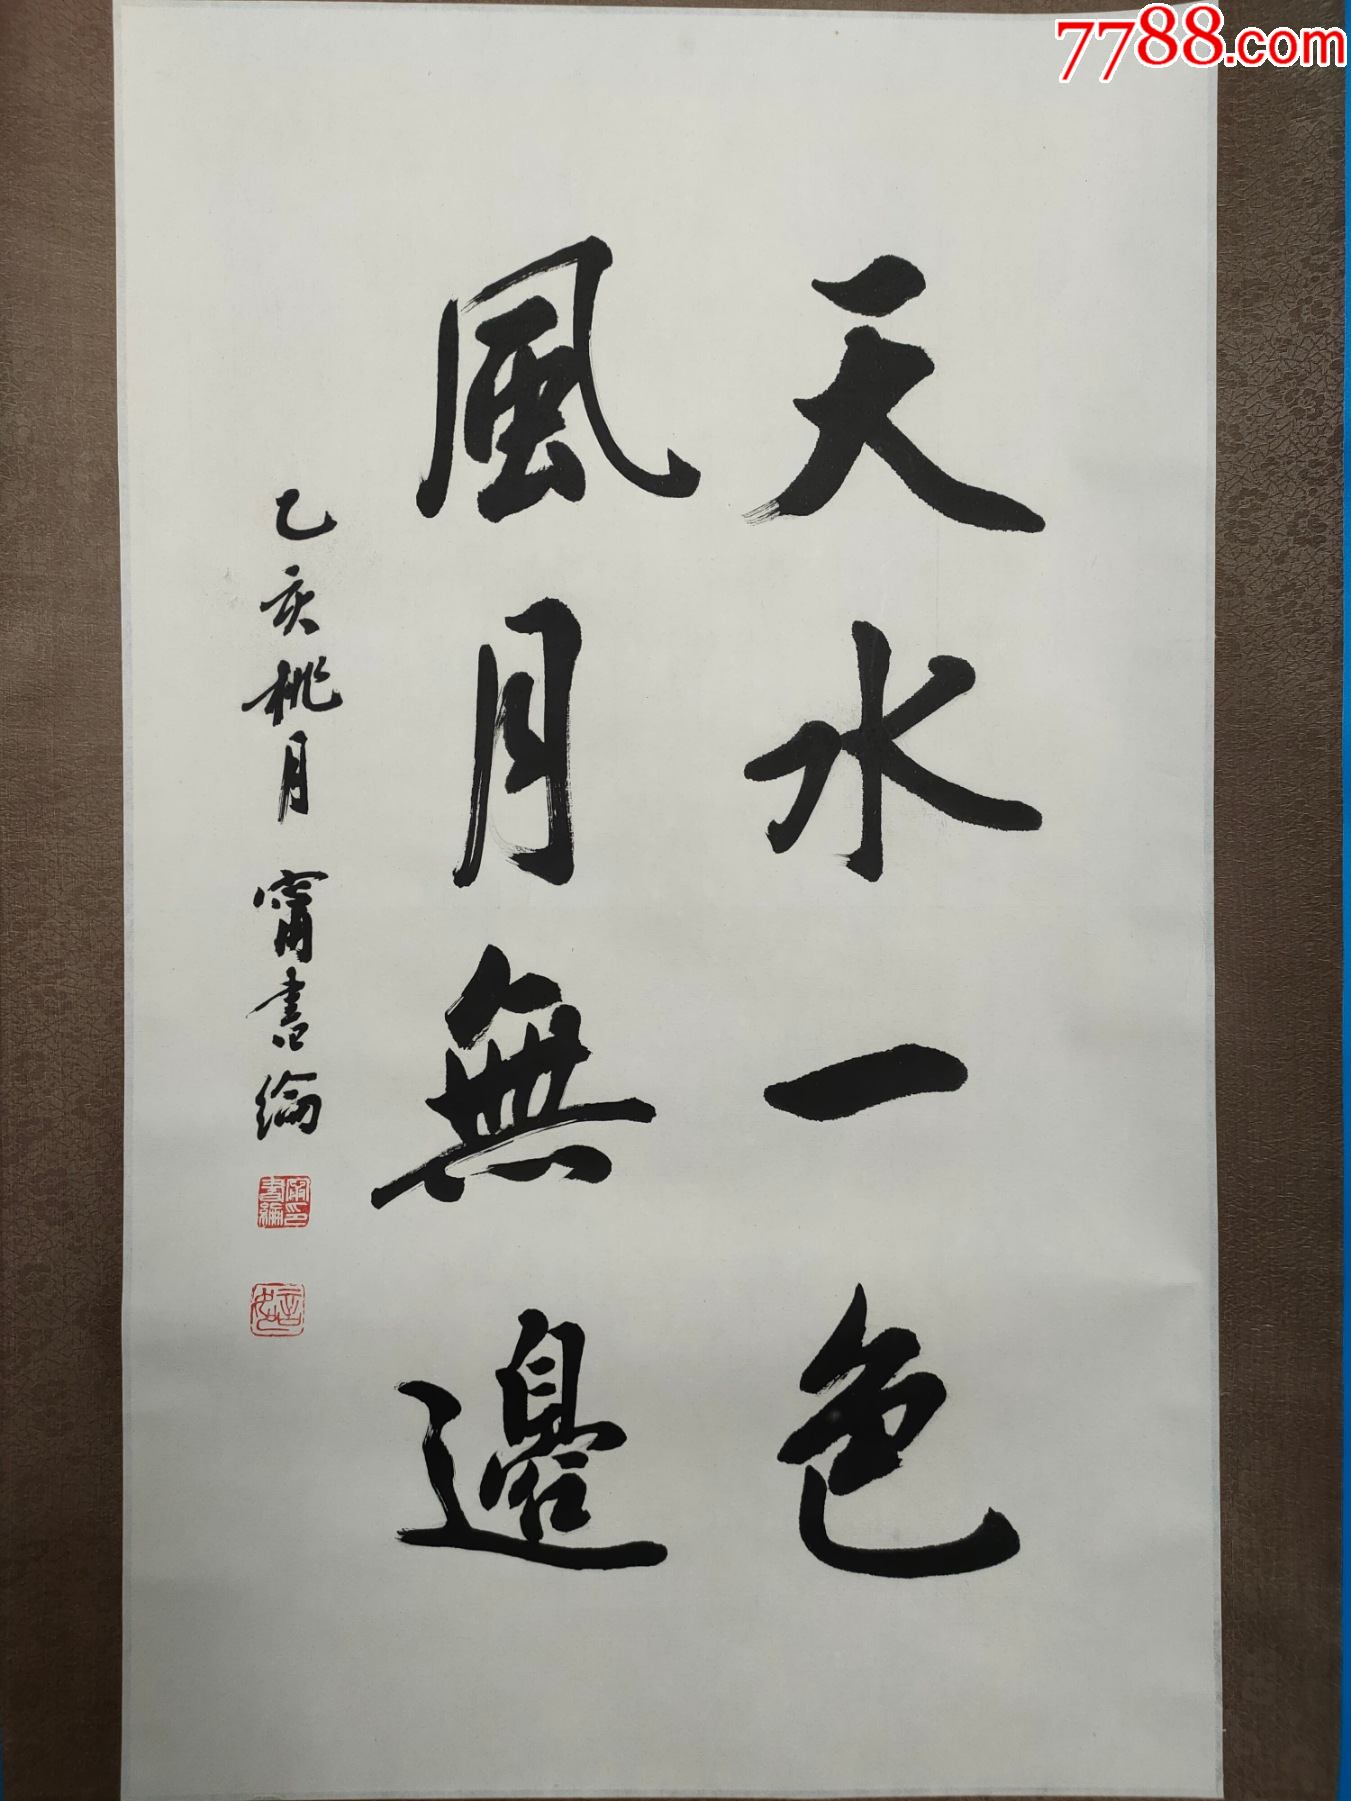 7788.com
天水一色
風月無邊
乙亥桃月甯書綸
甯印書綸